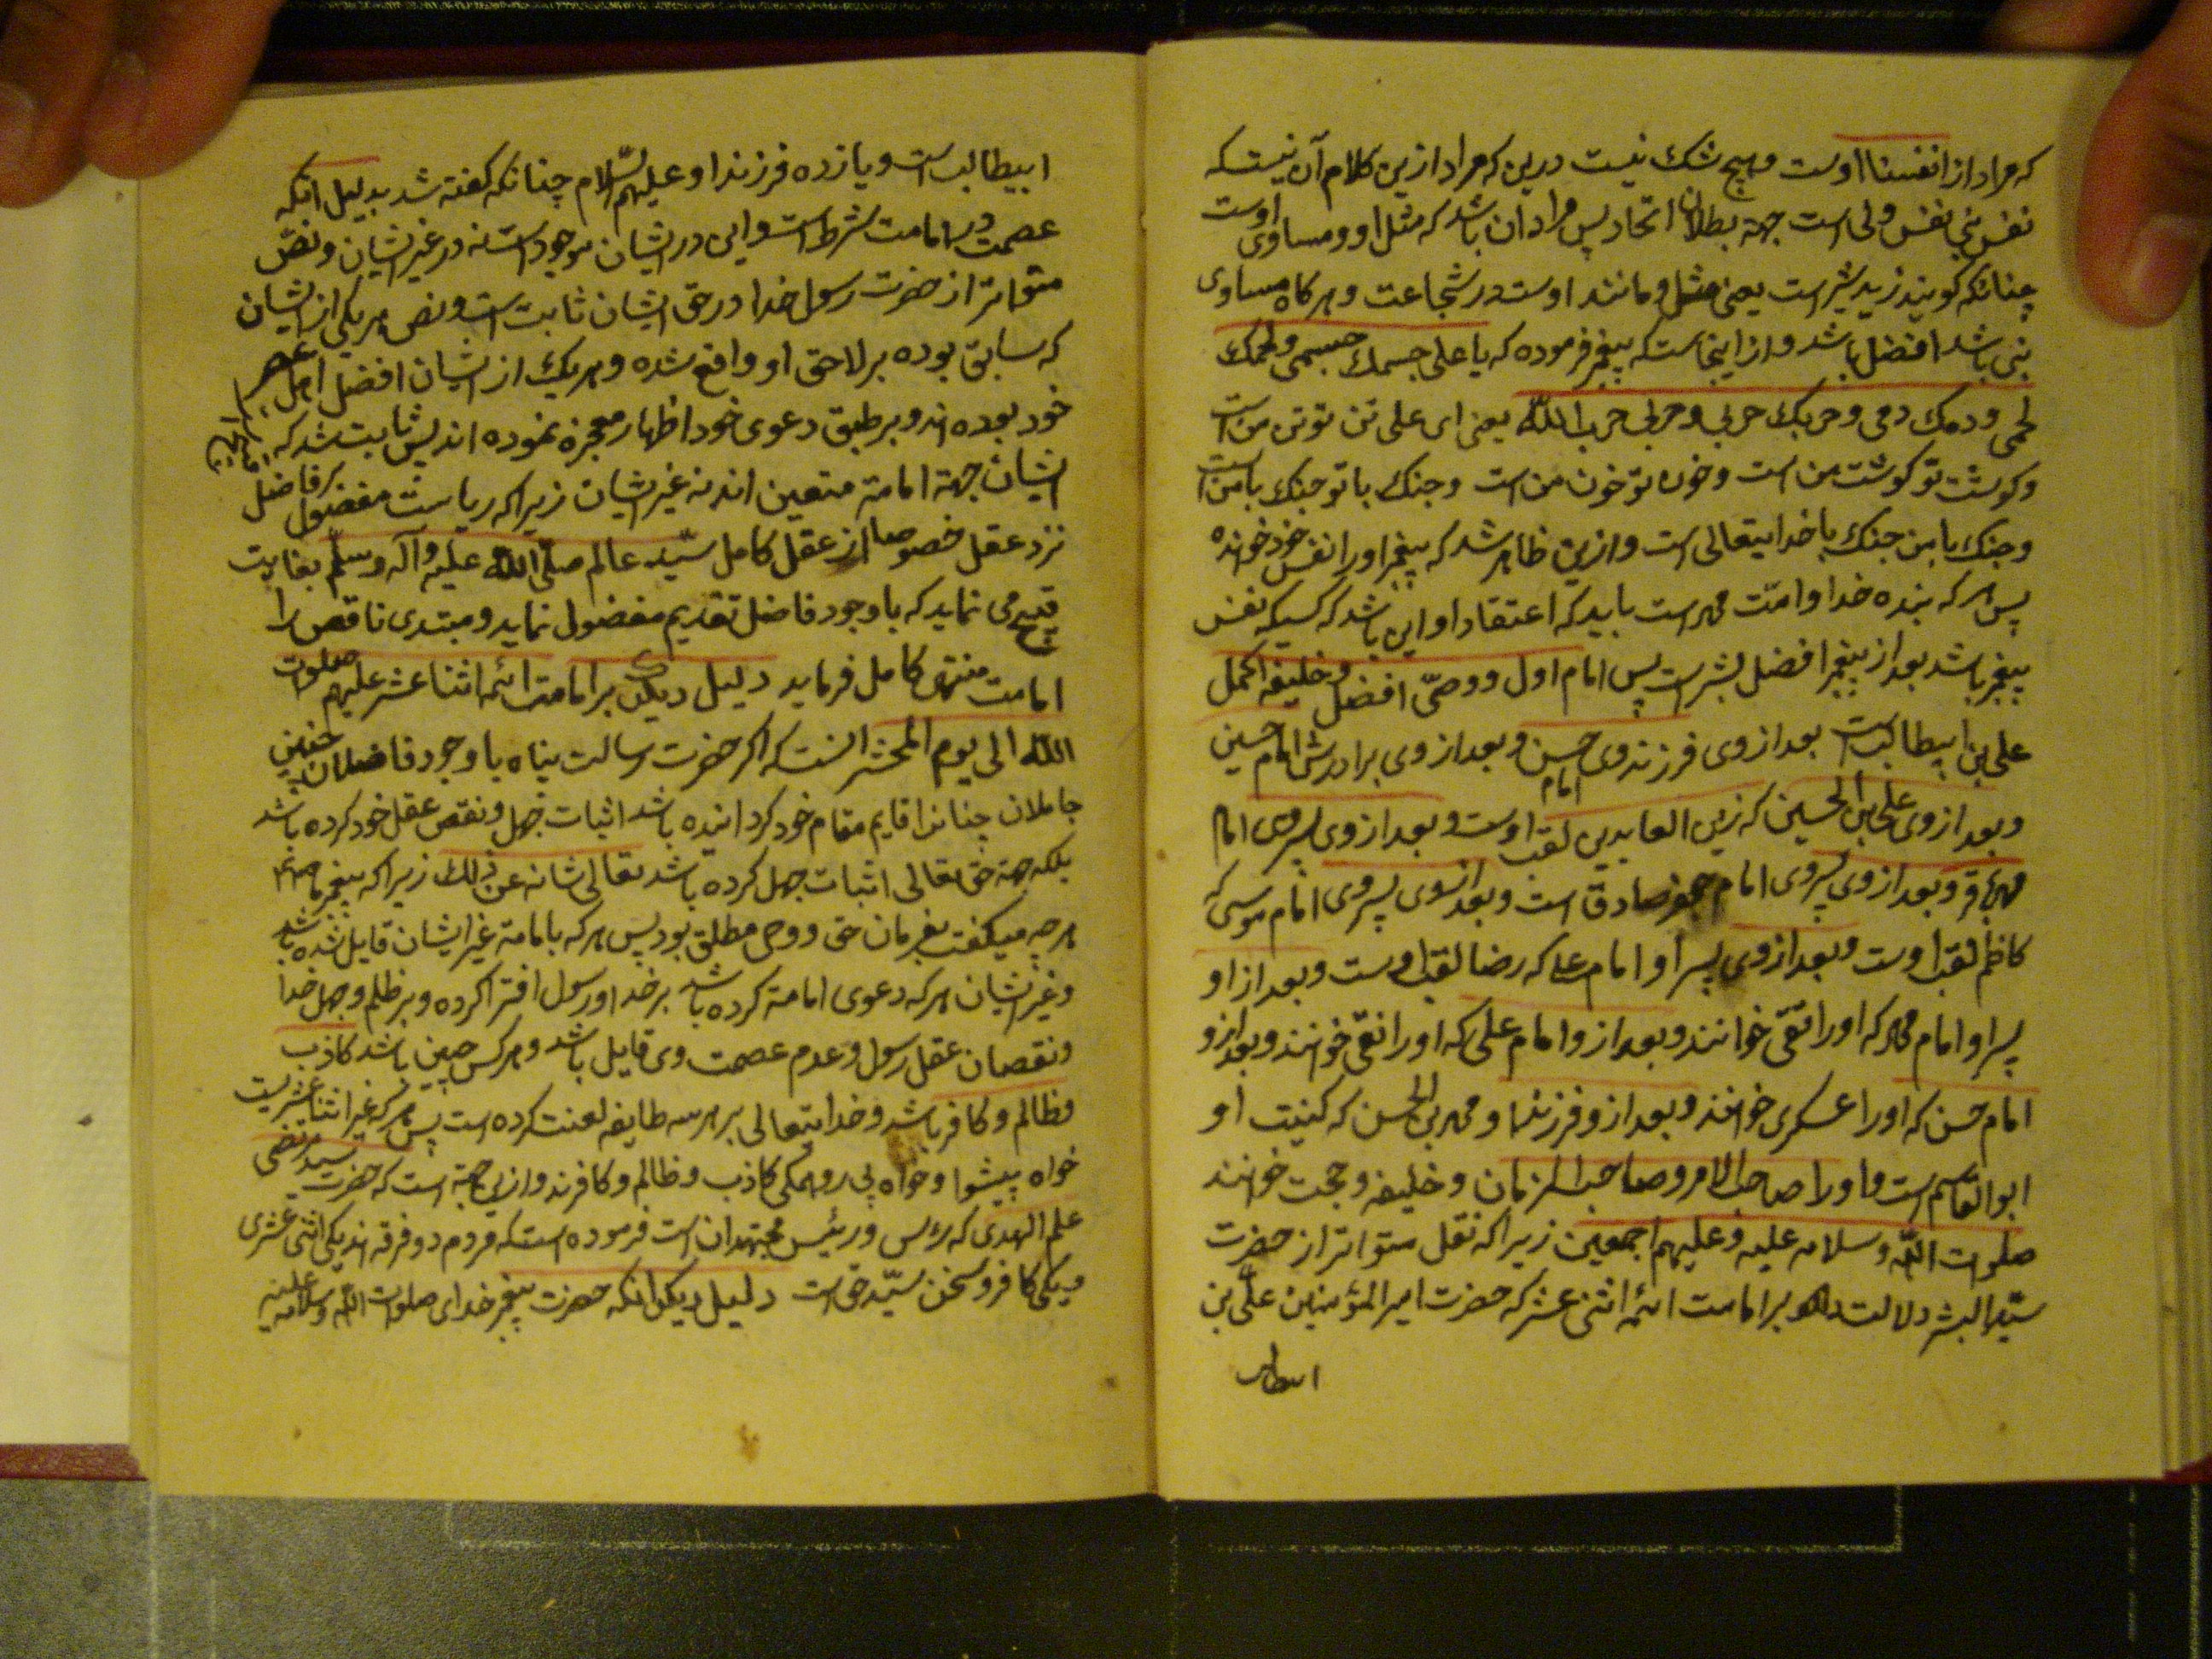 که مراد از انفسنا اوست و هیچ شک نیست درین که مراد ازین کلام آن نیست که
نفس نبی نفس ولی است جهة بطلان اتحاد پس مراد آن باشد که مثل او و مساوی اوست
چنانکه کویند زید شیر است یعنی مثل و مانند اوست در شجاعت و هر کاه مساوی
نبی باشد افضل باشد و از اینجاست که پیغمبر فرموده که یا علی جسمک جسمی و لحمک
لحمی و دمک دمی و حربک حربی و حربی حرب الله یعنی ای علی تن تو تن من است
و کوشت تو کوشت من است و خون تو خون من است و جنک با تو جنک با من است
و جنک با من جنک با خدایتعالی است و ازین ظاهر شد که پیغمبر او را نفس خود خوانده
پس هر که بنده خدا و امّت محمد است باید که اعتقاد او این باشد که کسیکه نفس
پیغمبر باشد بعد از پیغمبر افضل بشر است پس امام اول و وصیّ افضل و خلیفه اکمل
علی بن ابیطالبست بعد از وی فرزند وی حسن و بعد از وی برادرش امام حسین
و بعد از وی علی بن الحسین که زین العابدین لقب اوست و بعد از وی پسر وی امام
محمد باقر و بعد از وی پسر وی امام جعفر صادق است و بعد از وی پسر وی امام موسی که
کاظم لقب اوست و بعد از وی پسر او امام علی که رضا لقب اوست و بعد از او
پسر او امام محمد که او را تقی خوانند و بعد از و امام علی که او را نقی خوانند و بعد از و
امام حسن که او را عسکری خوانند و بعد از و فرزند او محمد بن الحسن که کنیت او
ابو القاسم است و او را صاحب الامر و صاحب الزمان و خلیفه و حجت خوانند
صلوات اللّه و سلامه علیه و علیهم اجمعین زیرا که نقل متواتر از حضرت
سیّد البشر دلالت دارد بر امامت ائمه اثنی عشر که حضرت امیر المؤمنین علیّ بن
ابیطالب
ابیطالبست و یازده فرزند او علیهم السّلام چنانکه کفته شد بدلیل انکه
عصمت در امامت شرط است و این در ایشان موجود است نه در غیر ایشان و نصّ
متواتر از حضرت رسول خدا در حق ایشان ثابت است و نص هر یکی از ایشان
که سابق بوده بر لاحق او واقع شده و هر یک از ایشان افضل اهل عصر
خود بوده اند و بر طبق دعوی خود اظهار معجزه نموده اند پس ثابت شد که
ایشان جهة امامة متعین اند نه غیر ایشان زیرا که ریاست مفضول بر فاضل
نزد عقل خصوصا از عقل کامل سیّد عالم صلّی اللّه علیه و آله و سلّم بغایت
قبیح می نماید که با وجود فاضل تقدیم مفضول نماید و مبتدی ناقص را
امامت منتهی کامل فرماید دلیل دیکر بر امامت ائمه اثنا عشر علیهم صلوات
اللّه الی یوم المحشر انست که اکر حضرت رسالت پناه با وجود فاضلان چنین
جاهلان چنانرا قایم مقام خود کردانیده باشد اثبات جهل و نقص عقل خود کرده باشد
بلکه جهة حق تعالی اثبات جهل کرده باشد تعالی شانه عن ذلک زیرا که پیغمبر ما
هر چه میکفت بفرمان حق و وحی مطلق بود پس هر که بامامة غیر ایشان قایل شده باشد
و غیر ایشان هر که دعوی امامة کرده باشد بر خدا و رسول افترا کرده و بر ظلم و جهل خدا
و نقصان عقل رسول و عدم عصمت وی قایل باشد و هر کس چنین باشد کاذب
و ظالم و کافر باشد و خدایتعالی بر هر سه طایفه لعنت کرده است پس هر که غیر اثنا عشریست
خواه پیشوا و خواه پی رو همکی کاذب و ظالم و کافرند و ازین جهة است که حضرت سید مرتضی
علم الهدی که رئس و رئیس مجتهدان است فرموده است که مردم دو فرقه اند یکی اثنی عشری
و یکی کافر و سخن سیّد حق است دلیل دیکر انکه حضرت پیغمبر خدای صلوات اللّه و سلامه علیه